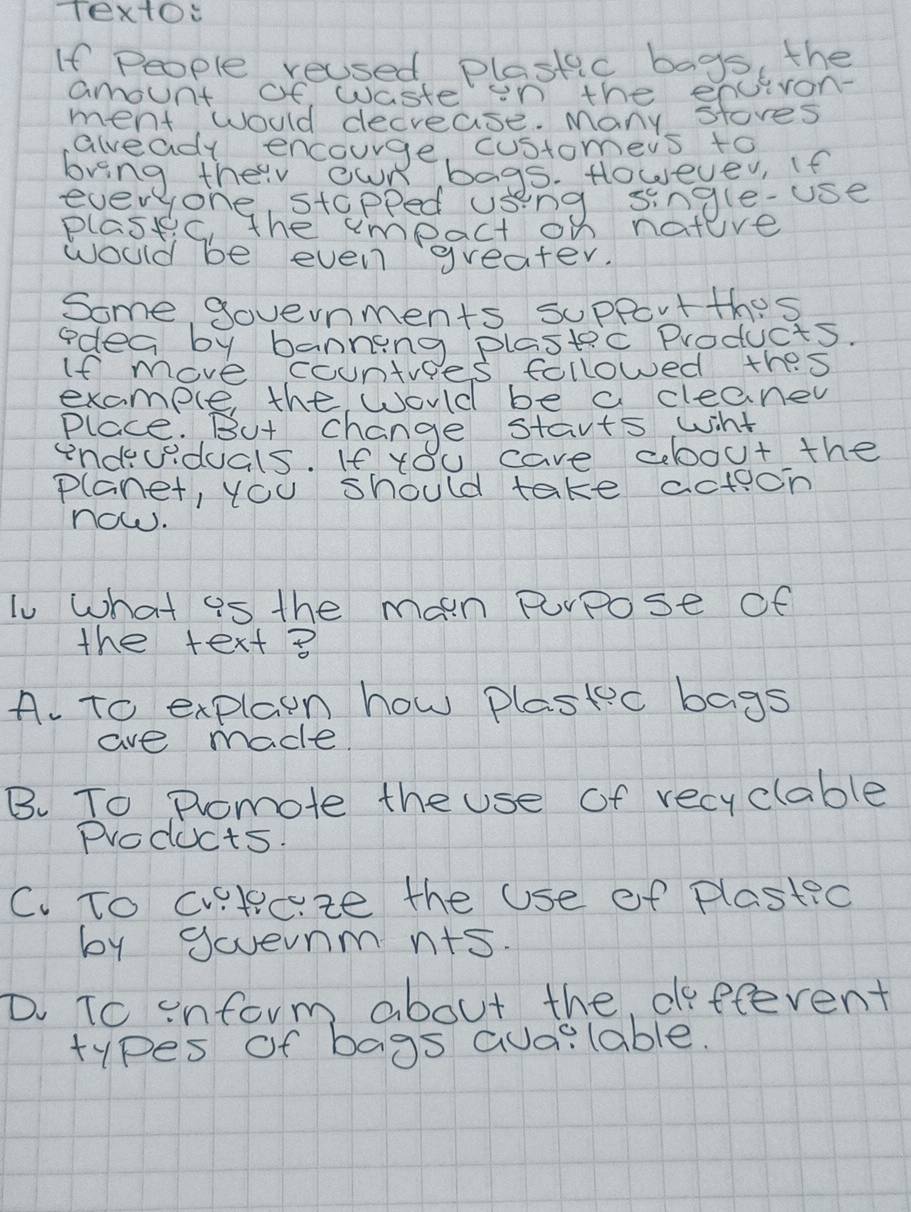 Texto:
If People reused plastic bags, the
amount of waste in the environ-
ment would decrease. Many stores
already encourge customers to
bring their own bags. However, if
everyone stopped using single-use
plastic, the impact on nature
would be even greater.
Some governments support this
idea by banning plastic Products.
If more countries followed this
example, the world be a cleaner
Place. But change starts wiht
individuals. If you care about the
planet, you should take action
now.
1. What is the main Purpose of
the text?
A. To explain how plastic bags
are made.
B. To Promote the use of recyclable
Products.
C. To criticize the use of plastic
by governm nts.
D. To inform about the different
types of bags available.